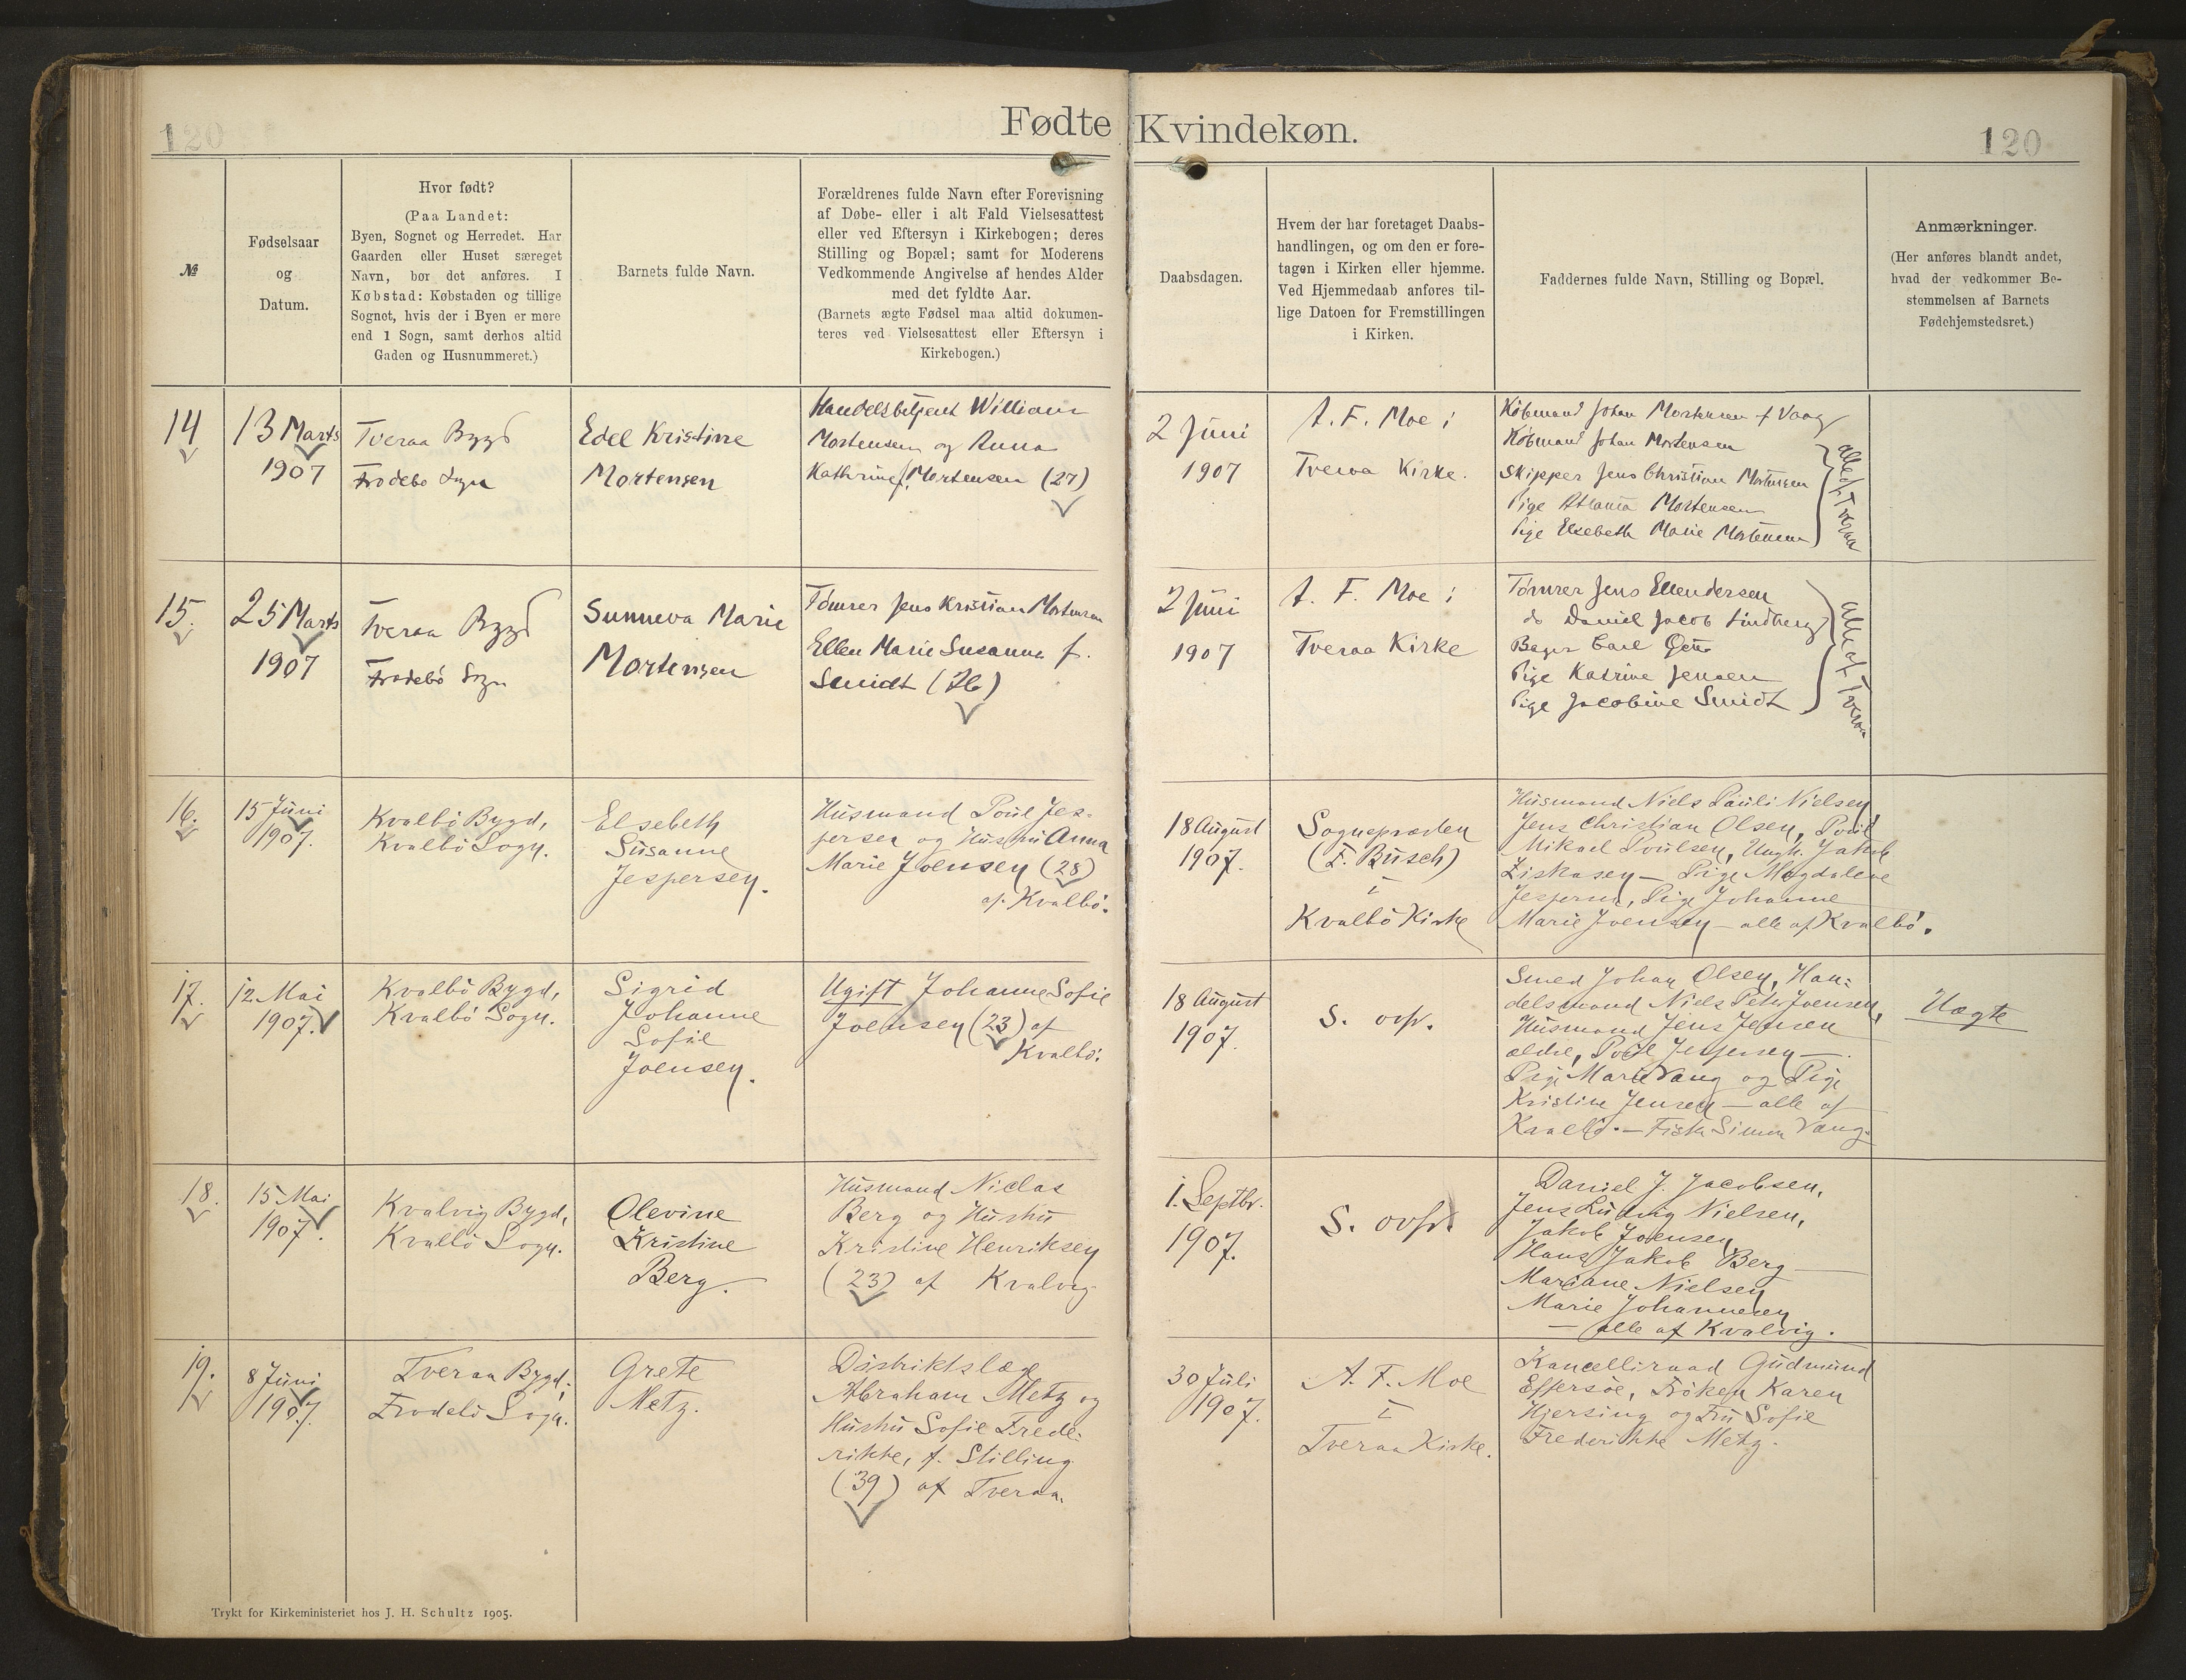 120
Fødte Kvindekøn.
120
№
Fødselsaar
og
Datum.
Hvor født?
(Paa Landet:
Byen, Sognet og Herredet. Har
Gaarden eller Huset særeget
Navn, bør det anføres. I
Købstad: Købstaden og tillige
Sognet, hvis der i Byen er mere
end 1 Sogn, samt derhos altid
Gaden og Husnummeret.)
Barnets fulde Navn.
Forældrenes fulde Navn efter Forevisning
af Døbe- eller i alt Fald Vielsesattest
eller ved Eftersyn i Kirkebogen; deres
Stilling og Bopæl; samt for Moderens
Vedkommende Angivelse af hendes Alder
med det fyldte Aar.
(Barnets ægte Fødsel maa altid dokumen-
teres ved Vielsesattest eller Eftersyn i
Kirkebogen.)
Daabsdagen.
Hvem der har foretaget Daabs-
handlingen, og om den er fore-
tagen i Kirken eller hjemme.
Ved Hjemmedaab anføres til-
lige Datoen for Fremstillingen
i Kirken.
Faddernes fulde Navn, Stilling og Bopæl.
Anmærkninger.
(Her anføres blandt andet,
hvad der vedkommer Be-
stemmelsen af Barnets
Fødehjemstedsret.)
14
13 Marts
1907
Tveraa Bygd
Frodebø Sogn
Edel Kristine
Mortensen
Handelsbetjent William
Mortensen og Anna
Kathrine f. Mortensen (27)
2 Juni
1907
A. F. Moe i
Tveraa Kirke.
Købmand Johan Mortensen f Vaag
Købmand Johan Mortensen
Skipper Jens Christian Mortensen
Pige Mortensen
Pige Elsebeth Marie Mortensen
alle af Tveraa
15.
25 Marts
1907
Tveraa Bygd
Frodebø Sogn
Sunneva Marie
Mortensen
Tömrer Jens Kristian Mortensen
Ellen Marie Susanna f.
Smidt (26)
2 Juni
1907
A. F. Moe i
Tveraa Kirke
Tömrer Jens Ellendersen
do Daniel Jacob Lindberg
Bager Carl
Pige Katrine Jensen
Pige Jacobine Smidt
alle af Tveraa
16.
15 Juni
1907.
Kvalbö Bygd,
Kvalbö Sogn.
Elsebeth
Susanne
Jespersen.
Husmand Poul Jes-
persen og Hustru Anna
Marie Joensen (28)
af Kvalbö.
18 August
1907.
Sognepræsten
(F. Busch)
i
Kvalbö Kirke
Husmand Niels Pauli Nielsen,
Jens Christian Olsen, Poul
Mikael Poulsen, Ungk. Jakob
Ziskasen — Pige Magdalene
Jespersen, Pige Johanne
Marie Joensen — alle af Kvalbö.
17.
12 Mai
1907.
Kvalbö Bygd,
Kvalbö Sogn.
Sigrid
Johanne
Sofie
Joensen.
Ugift Johanne Sofie
Joensen (23) af
Kvalbö.
18 August
1907.
S. ovfr.
Smed Johan Olsen, Han-
delsmand Niels Peter Joensen,
Husmand Jens Jensen
ældre, Poul Jespersen —
Pige Marie Vang og Pige
Kristine Jensen — alle af
Kvalbö. — Fisk. Simon Vang.
Uægte
18.
15 Mai
1907.
Kvalvig Bygd,
Kvalbö Sogn.
Olevine
Kristine
Berg.
Husmand Niclas
Berg og Hustru
Kristine Henriksen
(23) af Kvalvig
1. Septbr.
1907.
S. ovfr.
Daniel J. Jacobsen,
Jens Ludvig Nielsen,
Jakob Joensen
Hans Jakob Berg —
Mariane Nielsen
Marie Johannesen
— alle af Kvalvig.
19.
8 Juni
1907.
Tveraa Bygd,
Frodebö Sogn.
Grete
Metz.
Distriktslæge
Abraham Metz og
Hustru Sofie Frede-
rikke, f. Stilling
(39) af Tveraa.
30 Juli
1907.
A. F. Moe
i
Tveraa Kirke.
Kancelliraad Gudmund
Effersøe, Fröken Karen
Hjersing og Fru Sofie
Frederikke Metz.
Trykt for Kirkeministeriet hos J. H. Schultz 1905.